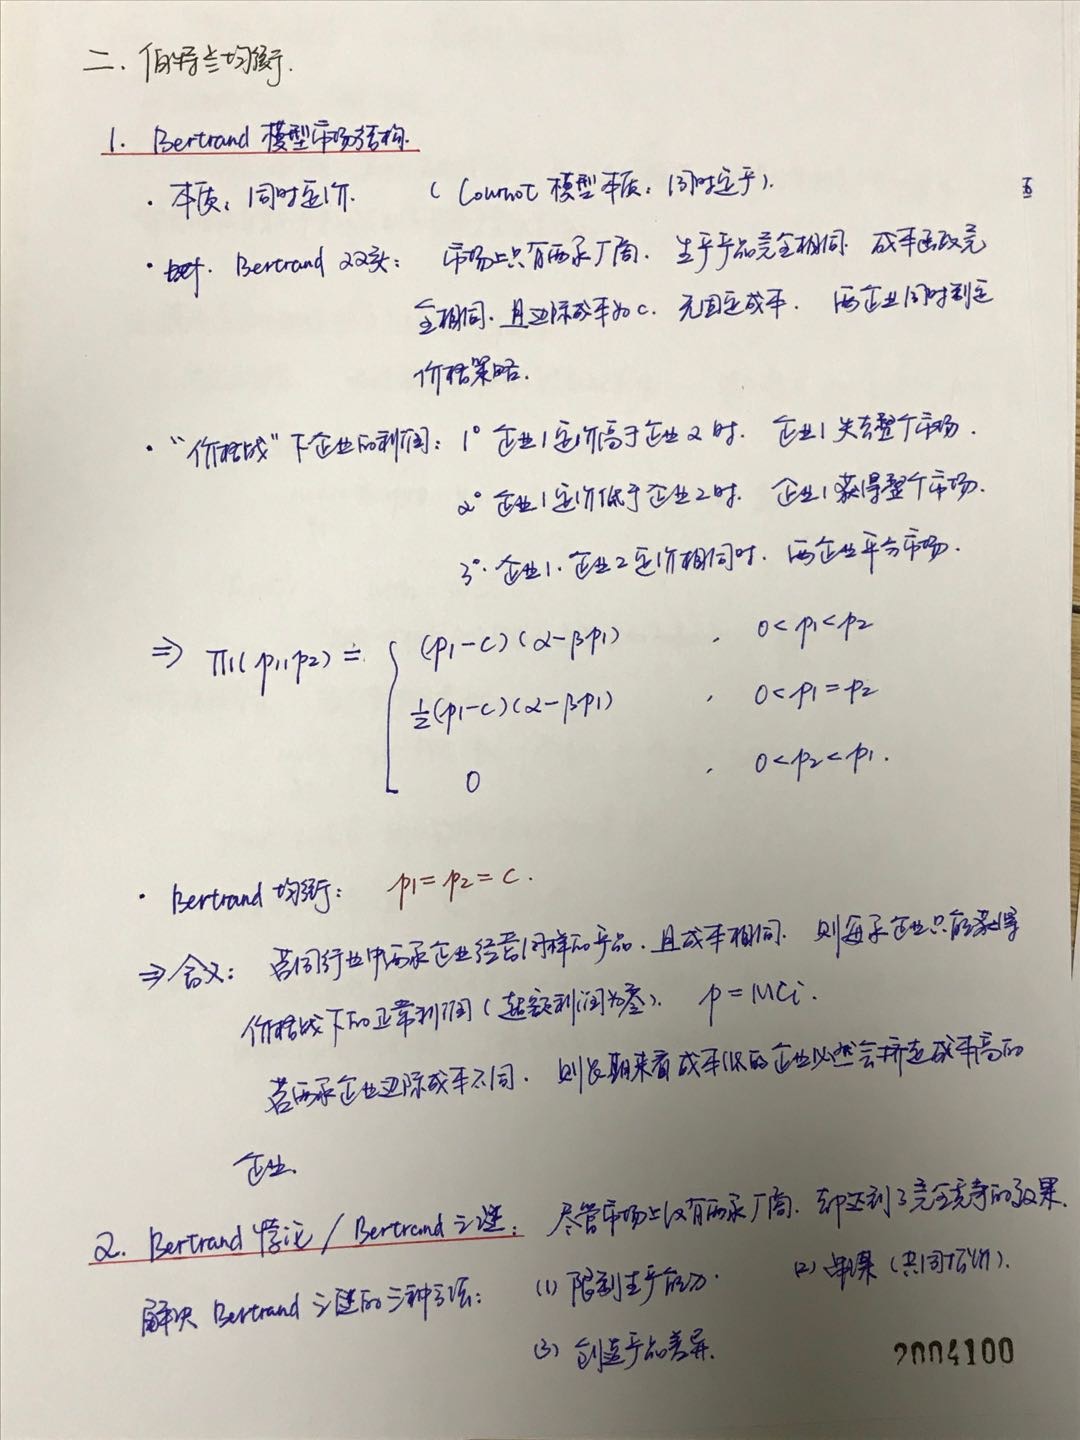 二. 伯特兰均衡.
1. Bertrand 模型市场结构.
· 本质: 同时定价. ( Cournot 模型本质: 同时定产).
五
· Bertrand 双头: 市场上只有两家厂商. 生产产品完全相同. 成本函数完
全相同. 且边际成本为c. 无固定成本. 两企业同时制定
价格策略.
· “价格战”下企业的利润: 1° 企业1定价高于企业2时. 企业1失去整个市场.
2° 企业1定价低于企业2时. 企业1获得整个市场.
3°. 企业1. 企业2定价相同时. 两企业平分市场.
⇒ π1(p1,p2) = { (p1-c)(α-βp1) , 0<p1<p2
½(p1-c)(α-βp1) , 0<p1=p2
0 , 0<p2<p1.
· Bertrand 均衡: p1=p2=c.
⇒ 含义: 若同行业中两家企业经营同样的产品. 且成本相同. 则每家企业只能获得
价格战下的正常利润(超额利润为零). p=MCi.
若两家企业边际成本不同. 则长期来看成本低的企业必然会挤走成本高的
企业.
2. Bertrand 悖论 / Bertrand 之谜: 尽管市场上仅有两家厂商. 却达到了完全竞争的效果.
解决 Bertrand 之谜的三种方法: (1) 限制生产能力. (2) 串谋 (共同抬价).
(3) 创造产品差异.
2004100